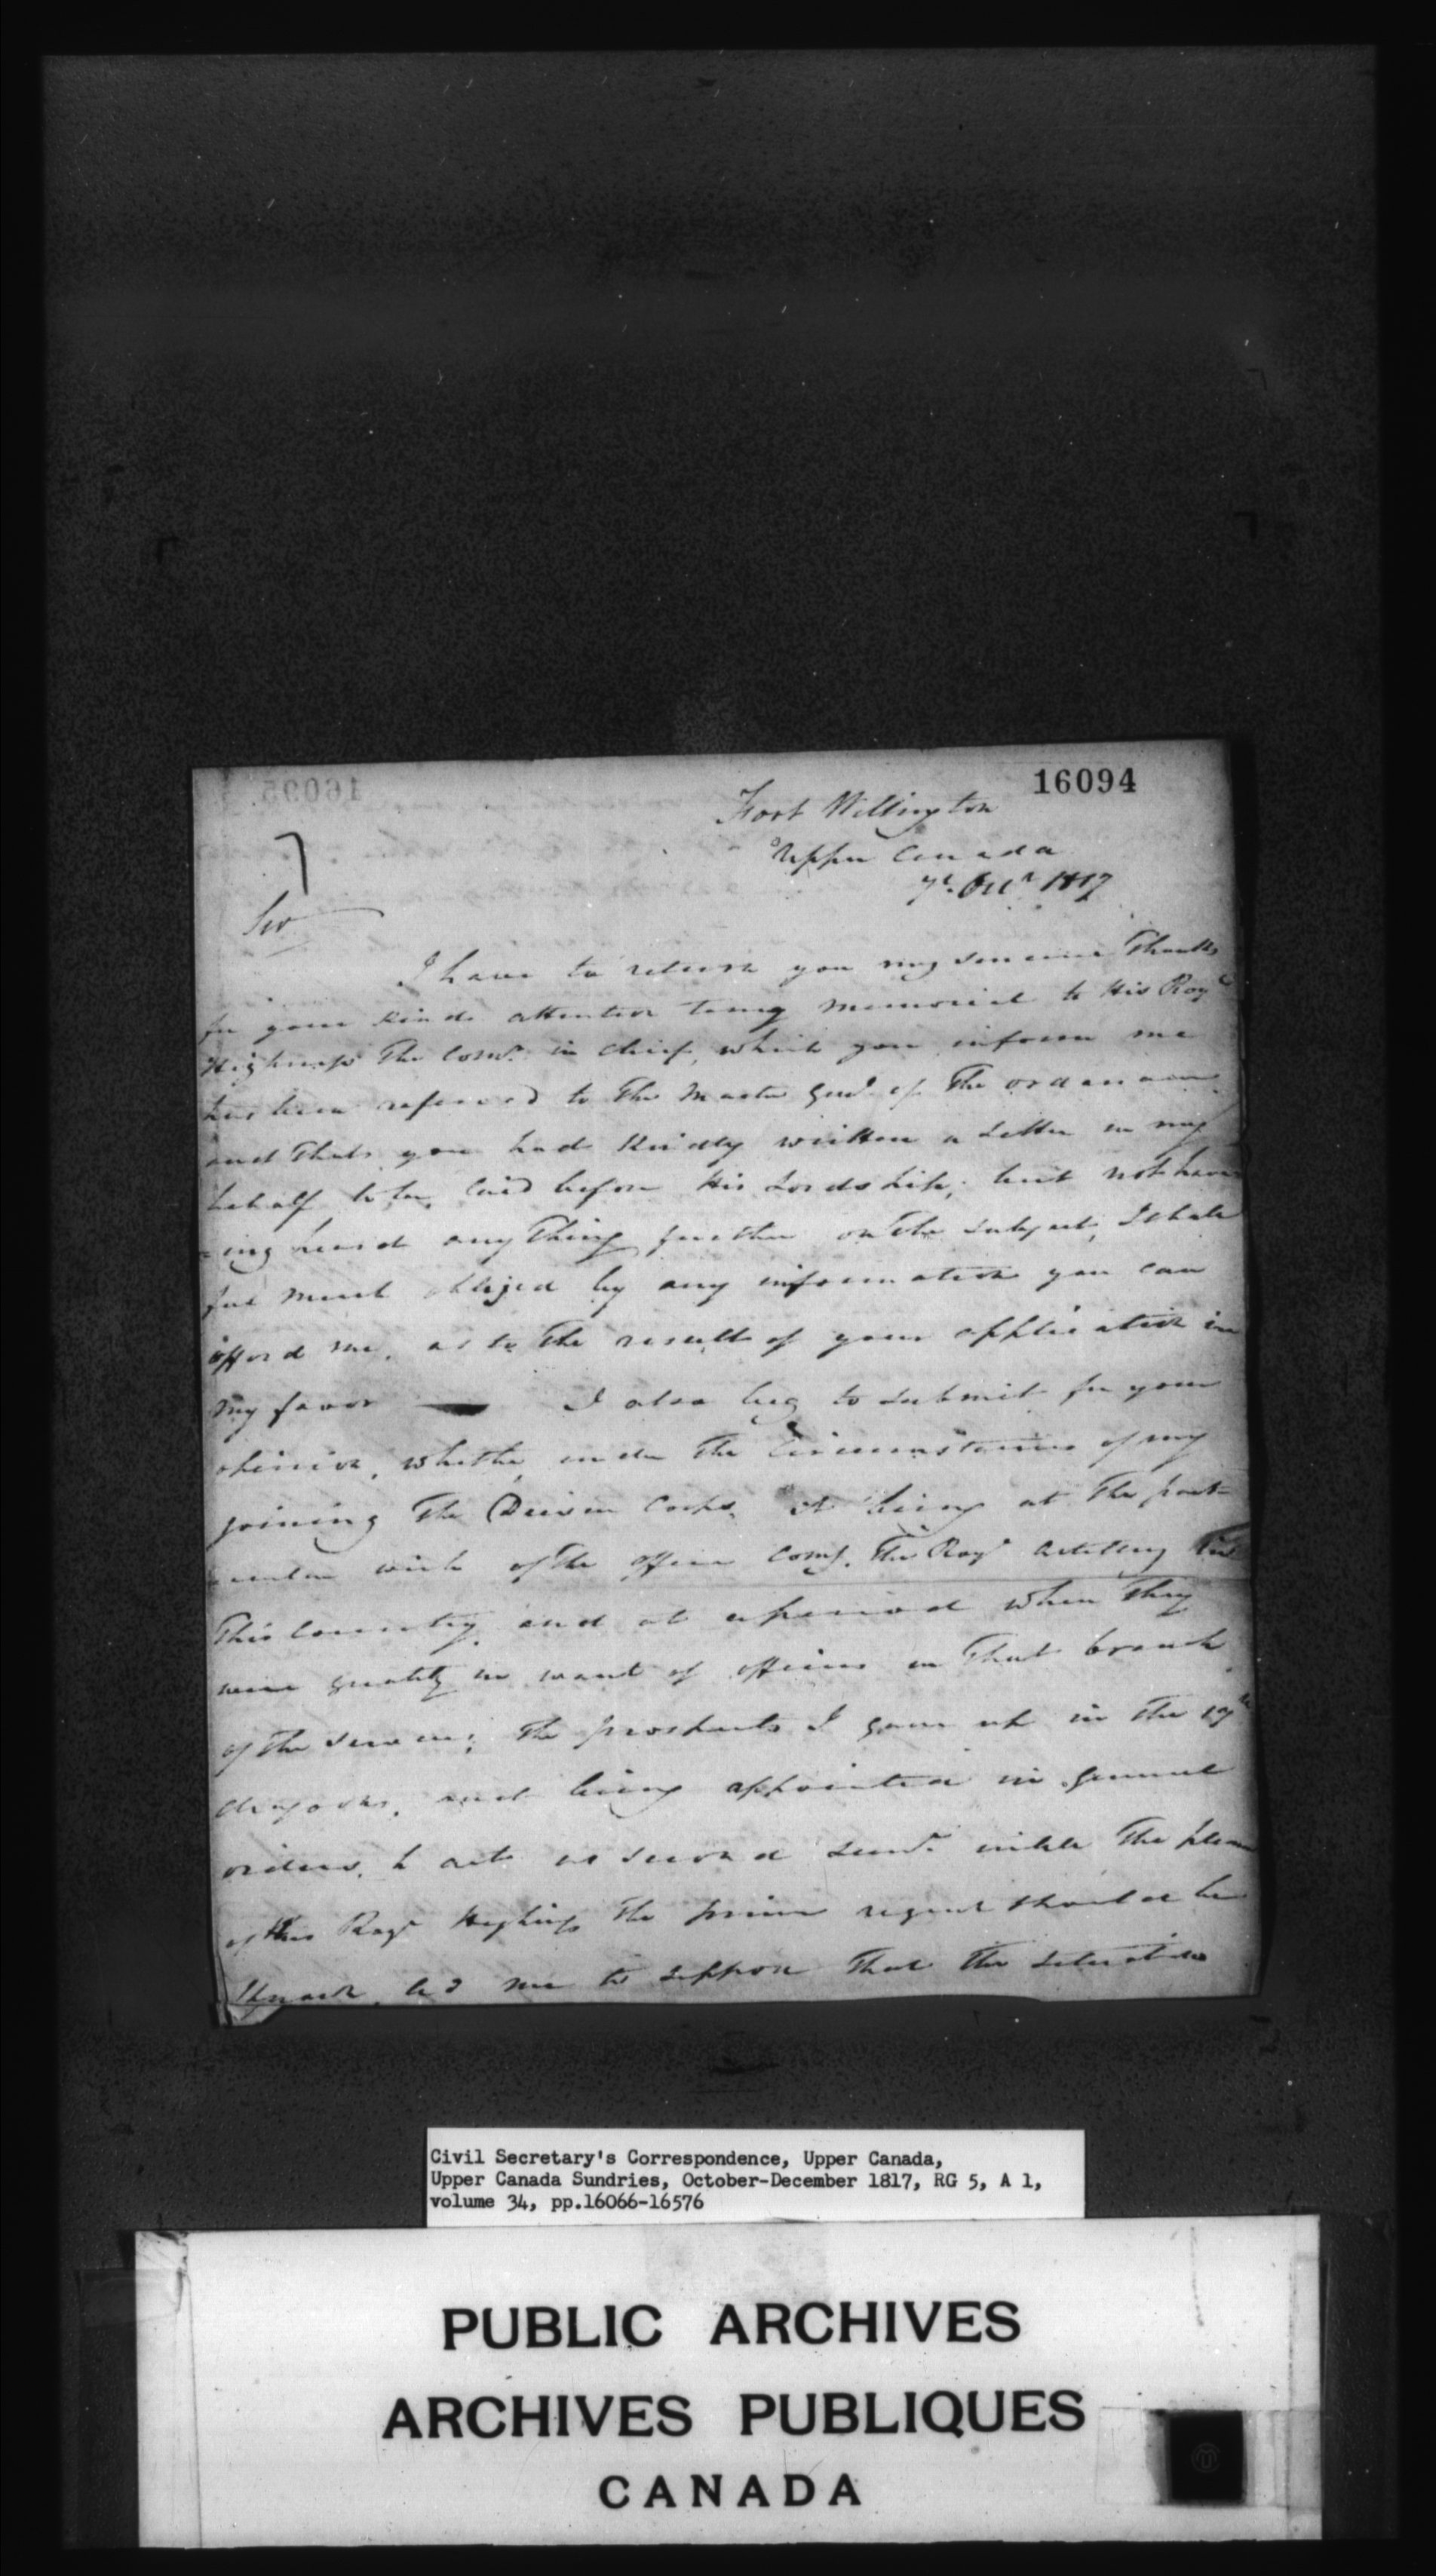 16094
Fort Wellington
Upper Canada
7t. Octr 1817
Sir
I have to return you my sincere Thanks
for your kind attention to my memorial to His Royl
Highness The Comr. in Chief, which you inform me
has been referred to The Master Genl. of The ordnance
and That you had kindly written a Letter in my
behalf to be laid before His Lordship; but not hav=
=ing heard any Thing further on The subject, I shall
feel much obliged by any information you can
afford me, as to The result of your application in
my favor — I also beg to submit for your
opinion, whether under The Circumstances of my
joining The Driver Corps, it being at The parti=
=cular wish of The officer Comg. The Royl Artillery in
This Country, and at a period when They
were greatly in want of officers in That branch
of The service; The prospects I gave up in The 19th
dragoons, and being appointed in general
orders, to act as second Lieut. until The pleasure
of His Royl Highness The prince regent should be
known, led me to suppose That The situation
Civil Secretary's Correspondence, Upper Canada,
Upper Canada Sundries, October-December 1817, RG 5, A 1,
volume 34, pp.16066-16576
PUBLIC ARCHIVES
ARCHIVES PUBLIQUES
CANADA